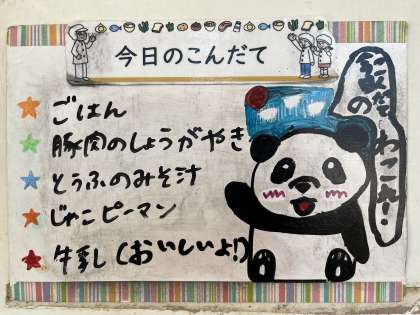 今日のこんだて
ごはん
豚肉のしょうがやき
とうふのみそ汁
じゃこピーマン
牛乳(おいしいよ!)
こんだて
の
わこれ!